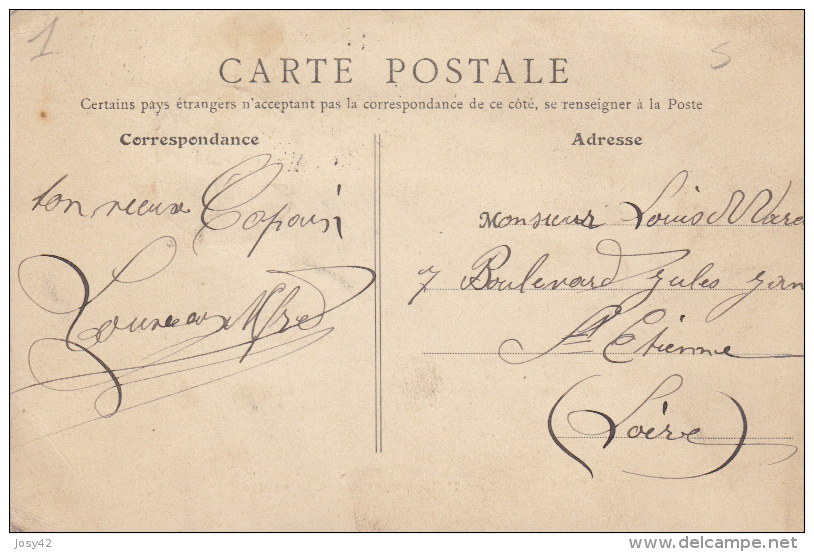 1
5
CARTE POSTALE
Certains pays étrangers n'acceptant pas la correspondance de ce côté, se renseigner à la Poste
Correspondance
Adresse
ton vieux Copain
Alfred
Monsieur Louis Marc
7 Boulevard Jules Jan
St Etienne
(Loire)
Josy42
www.delcampe.net